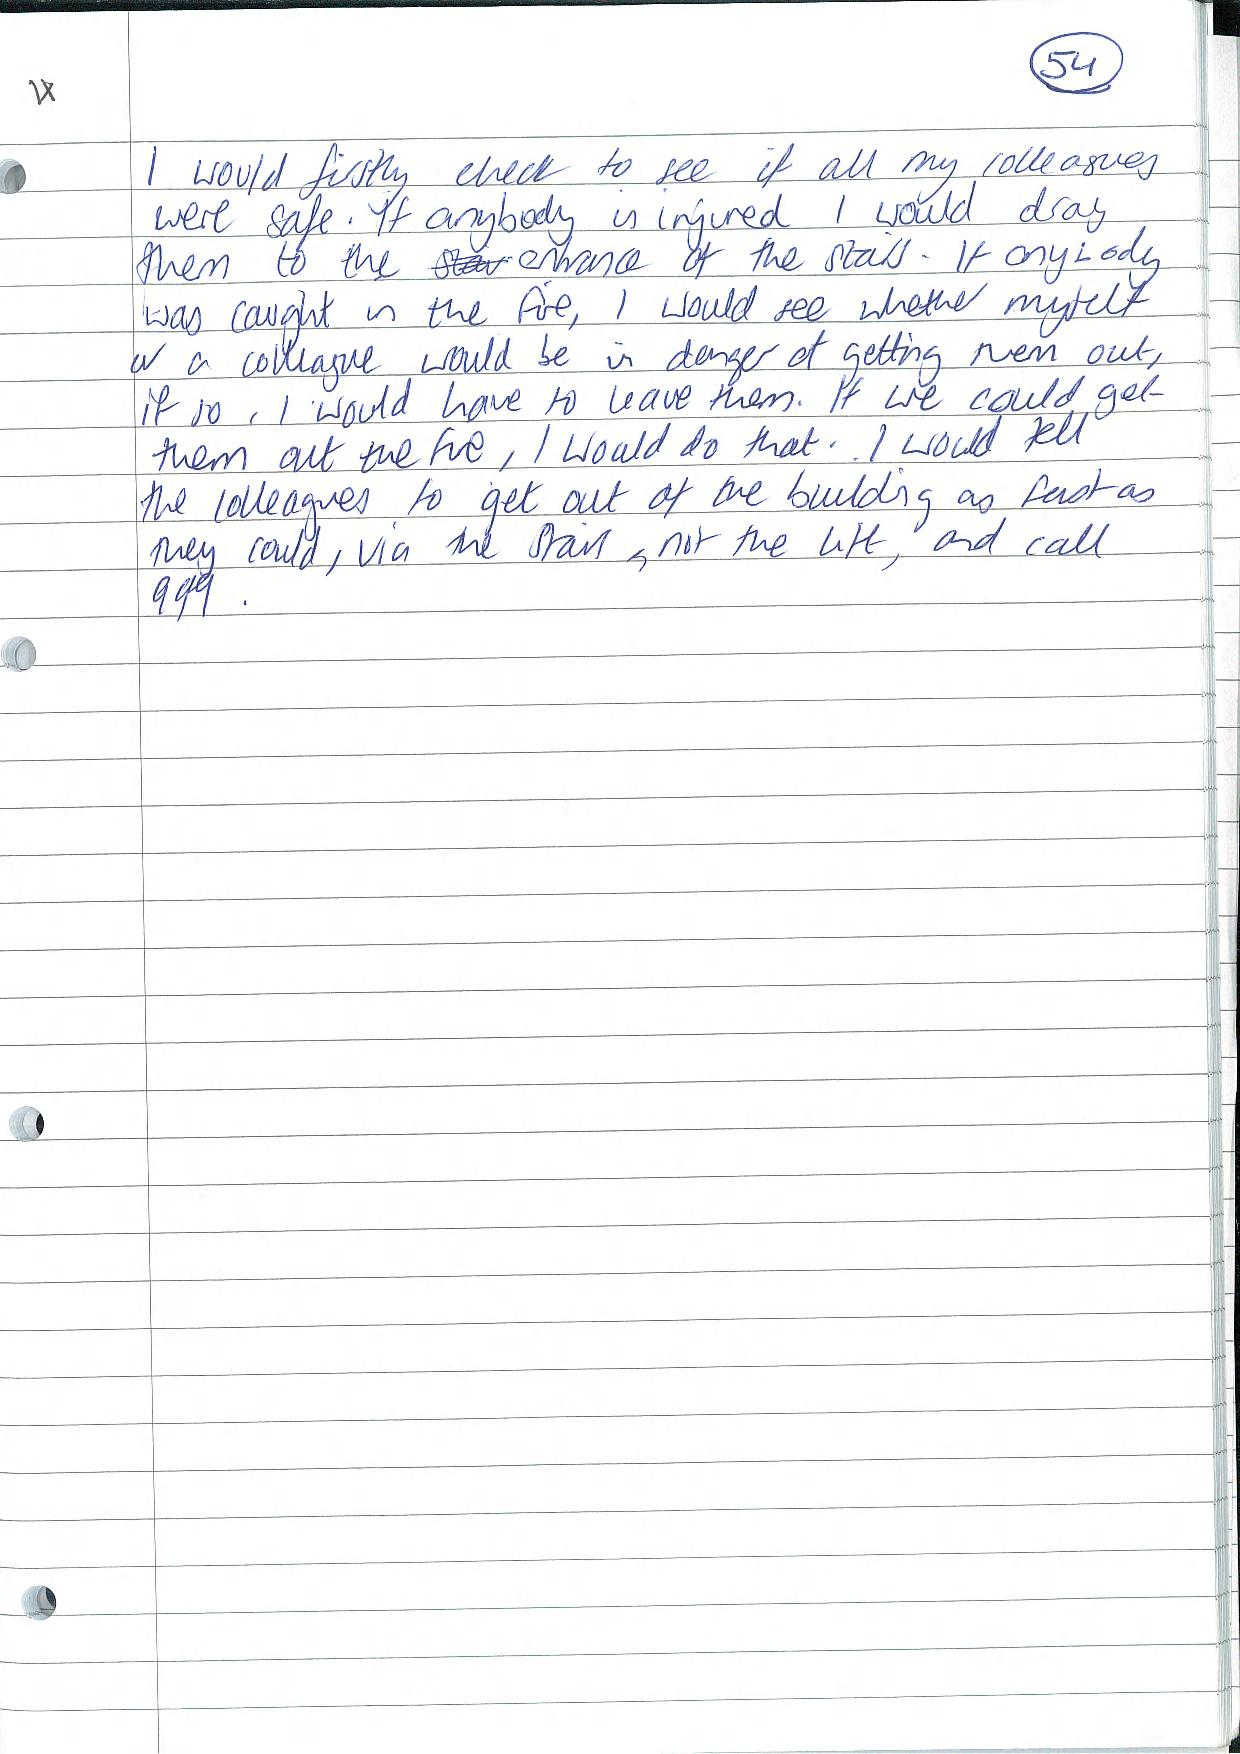 54
I would firstly check to see if all my colleagues
were safe. If anybody is injured I would drag
them to the entrance of the stairs. If anybody
was caught in the fire, I would see whether myself
or a colleague would be in danger of getting them out,
if so, I would have to leave them. If we could get
them out the fire, I would do that. I would tell
the colleagues to get out of the building as fast as
they could, via the stairs, not the lift, and call
999.